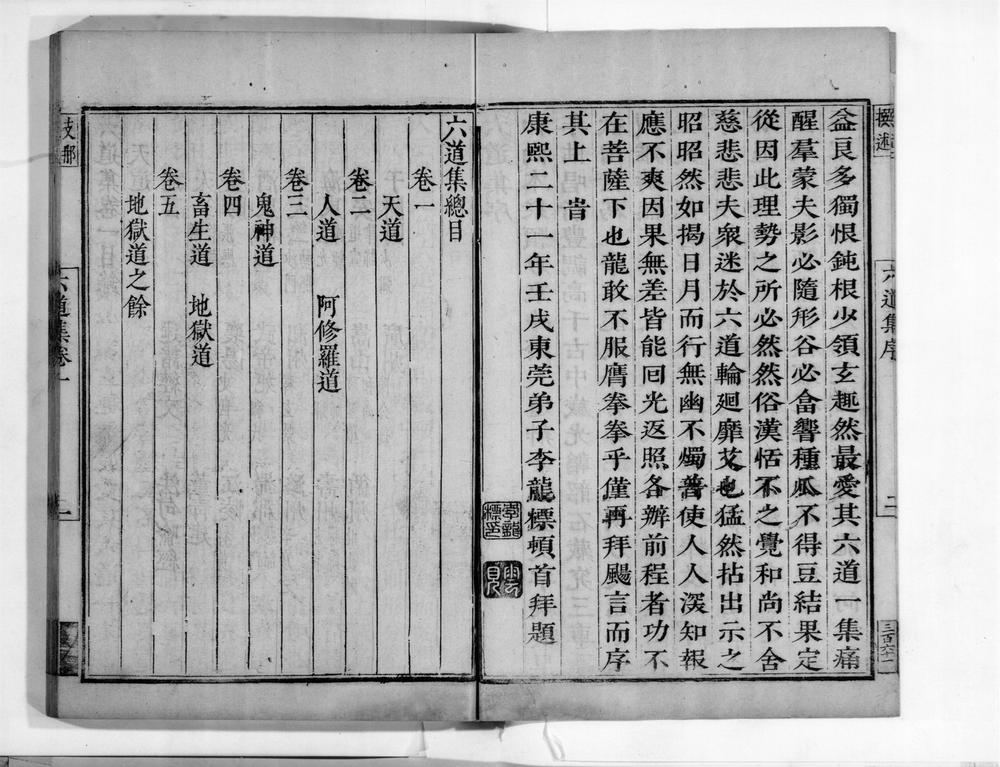 撰述
六道集序
二
三百六一
益良多獨恨鈍根少領玄趣然最愛其六道一集痛
醒羣蒙夫影必隨形谷必畣響種瓜不得豆結果定
從因此理勢之所必然然俗漢恬不之覺和尚不舍
慈悲悲夫衆迷於六道輪廻靡艾也猛然拈出示之
昭昭然如揭日月而行無幽不燭普使人人深知報
應不爽因果無差皆能回光返照各辦前程者功不
在菩薩下也龍敢不服膺拳拳乎僅再拜颺言而序
其上旹
康熙二十一年壬戌東莞弟子李龍標頓首拜題
李龍標印
六道集總目
卷一
天道
卷二
人道 阿修羅道
卷三
鬼神道
卷四
畜生道 地獄道
卷五
地獄道之餘
支那
六道集卷一
一